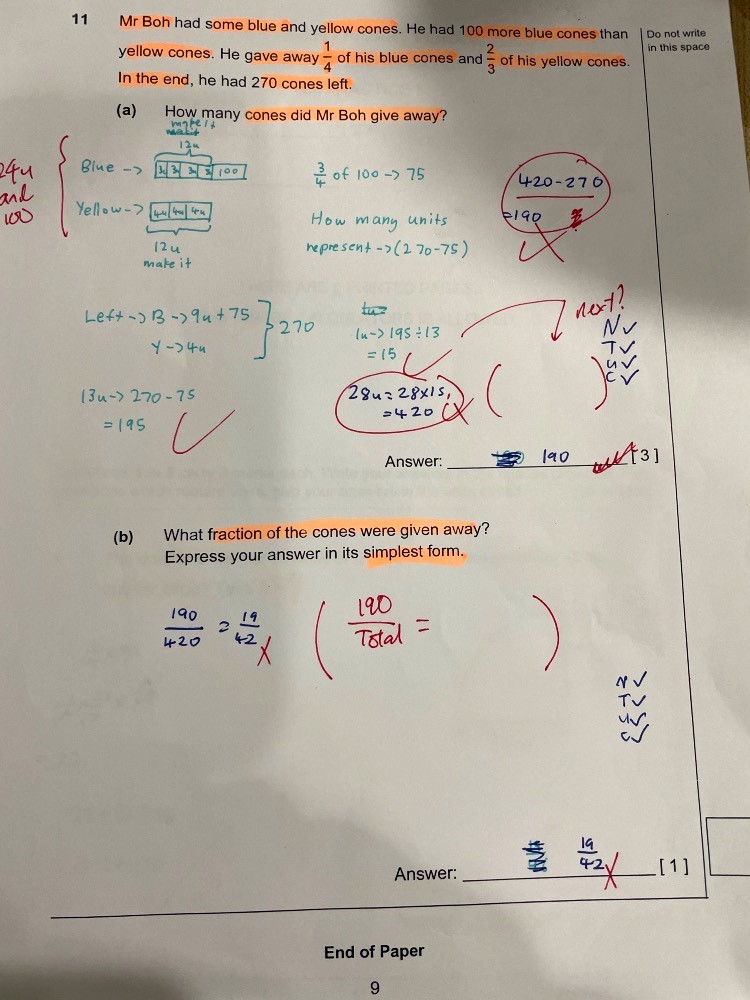 11 Mr Boh had some blue and yellow cones. He had 100 more blue cones than
yellow cones. He gave away 1/4 of his blue cones and 2/3 of his yellow cones.
In the end, he had 270 cones left.
Do not write
in this space
(a) How many cones did Mr Boh give away?
make it
12u
Blue -> 3u 3u 3u 3u 100
Yellow -> 4u 4u 4u
12u
make it
24u
and
100
3/4 of 100 -> 75
How many units
represent -> (270-75)
420-270
=190
Left -> B -> 9u + 75
Y -> 4u
270
13u -> 270-75
= 195
1u -> 195 ÷ 13
= 15
28u = 28x15
= 420
next?
N ✓
T ✓
u ✓
C ✓
( )
Answer: 190 [3]
(b) What fraction of the cones were given away?
Express your answer in its simplest form.
190/420 = 19/42
( 190/Total = )
N ✓
T ✓
u ✓
C ✓
Answer: 19/42 [1]
End of Paper
9